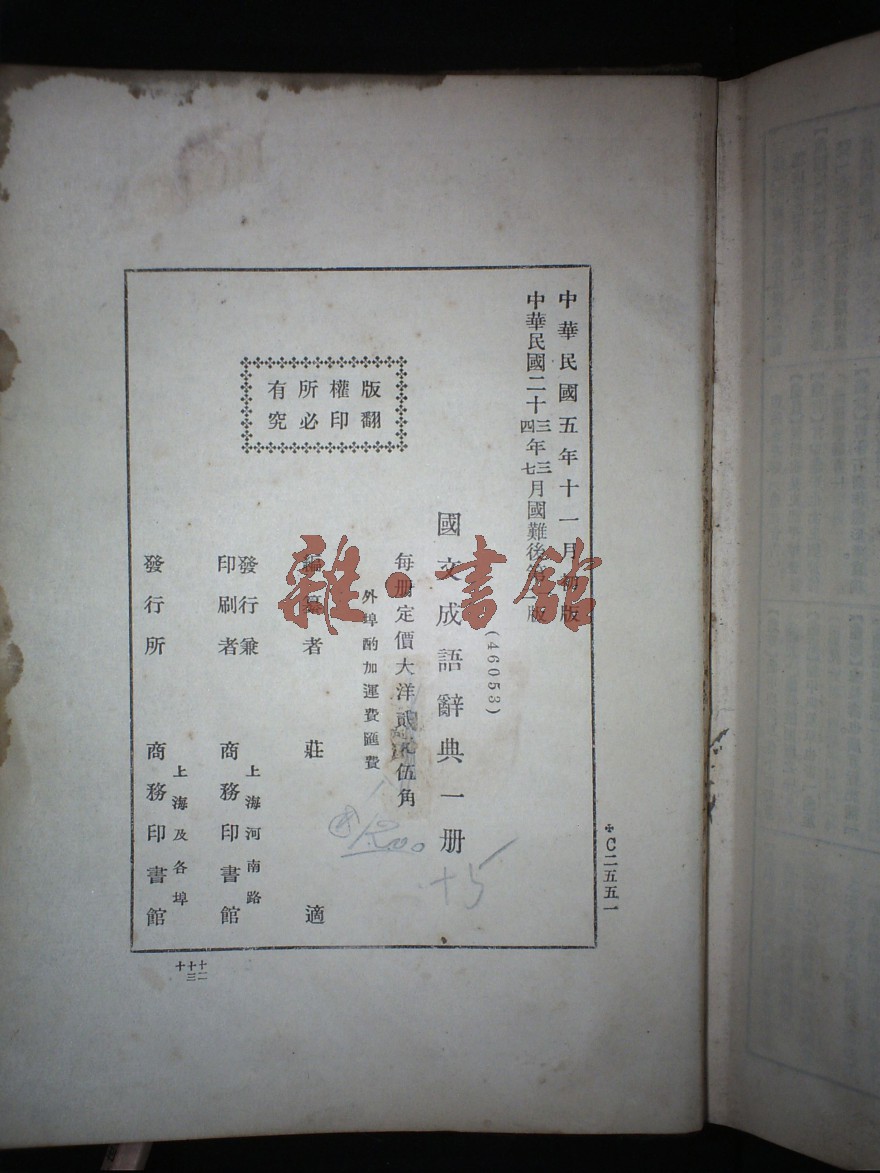 中華民國五年十一月初版
中華民國二十三四年三七月國難後第版
(46053)
國文成語辭典一册
每册定價大洋貳元伍角
外埠酌加運費匯費
版權所有
翻印必究
編纂者 莊適
發行兼印刷者 上海河南路 商務印書館
發行所 上海及各埠 商務印書館
C二五五一
雜·書館
+5